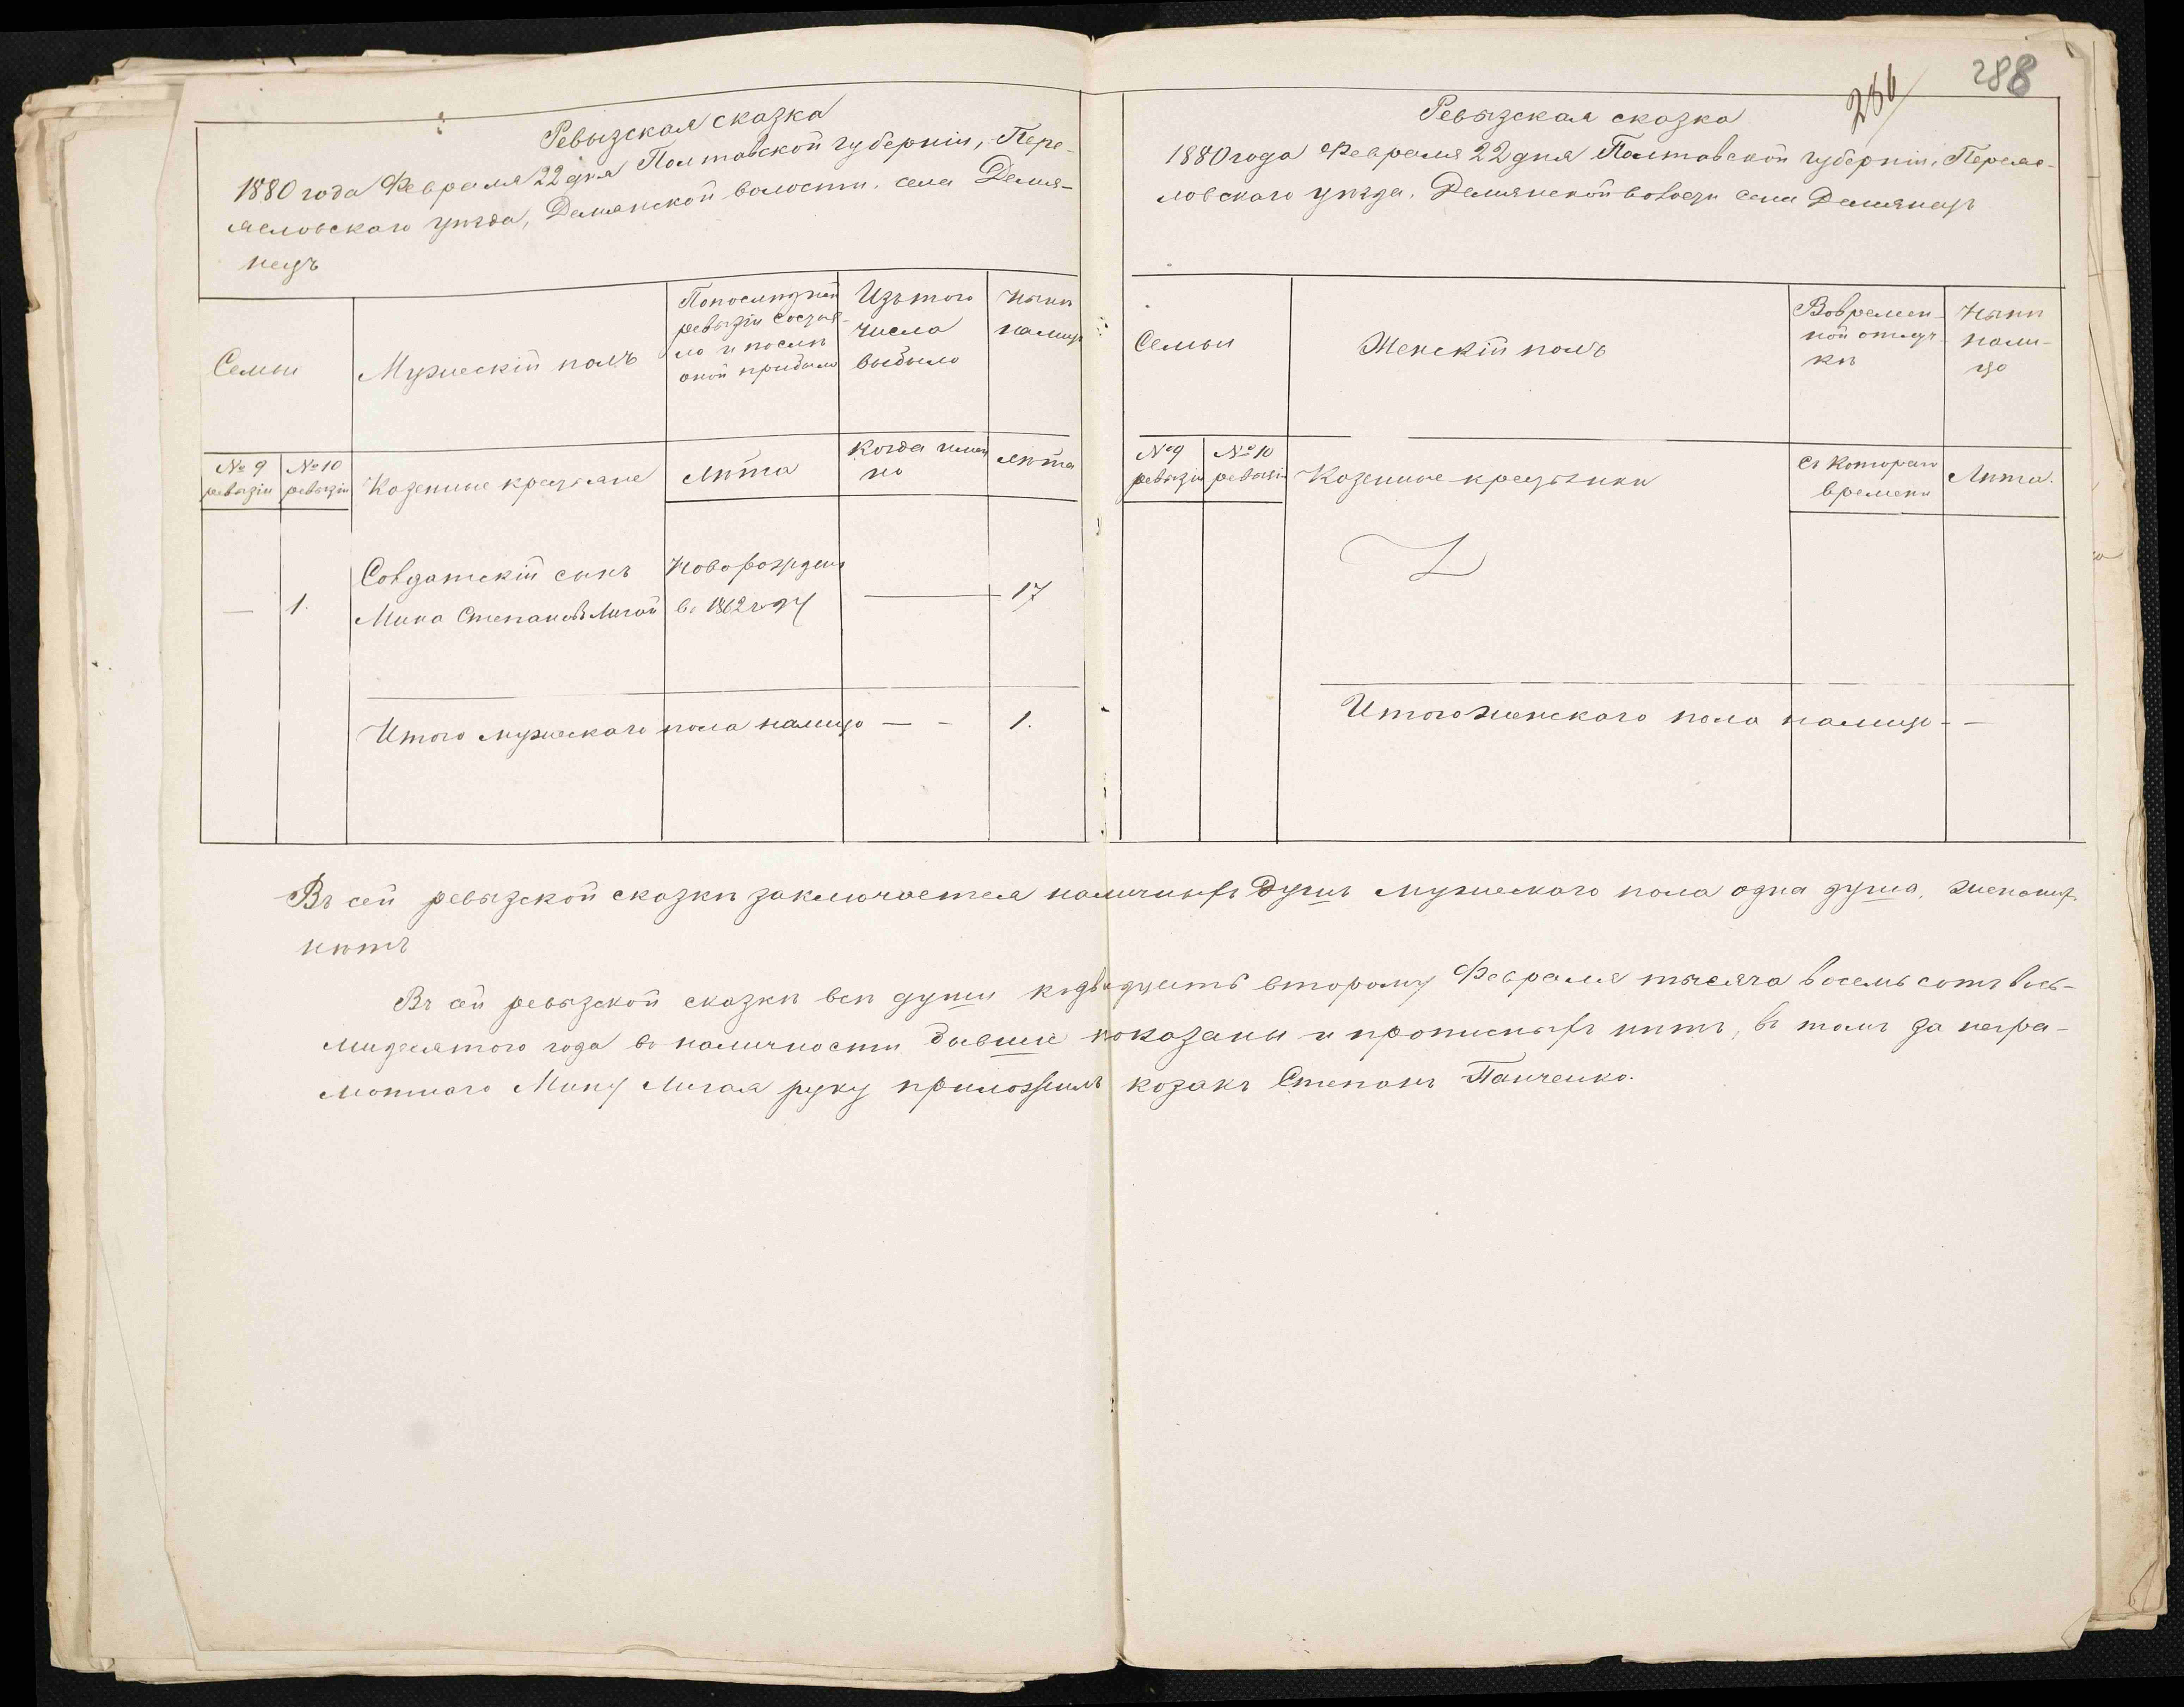 288
286
Ревызская сказка
1880 года Февраля 22 дня Полтавской губерніи, Пере-
яеловскаго уѣзда, Демянской волости, села Демя-
нецъ
Семьи
Мужескій полъ
По послѣдней
ревызіи состоя-
ло и послѣ
оной прибыло
Изъ того
числа
выбыло
Нынѣ
налицо
№ 9
ревызіи
№ 10
ревызіи
Козенные крестяне
Лѣта
Когда имен
но
Лѣта
Солдатскій сынъ
Мина Степановъ Лигай
Новорожденъ
въ 1862 году
— 1. — 17
Итого мужескаго пола налицо — - 1.
Ревызская сказка
1880 года Февраля 22 дня Полтавской губерніи, Переяс-
ловскаго уѣзда, Демянской волости села Демянецъ
Семьи
Женскій полъ
Во времен-
ной отлуч-
кѣ
Нынѣ
нали-
цо
№ 9
ревызіи
№ 10
ревызіи
Козенные крестянки
Съ котораго
времени
Лѣта.
Итого женскаго пола налицо - —
Въ сей ревызской сказкѣ заключается наличныхъ душъ мужескаго пола одна душа, женскихъ
нѣтъ
Въ сей ревызской сказкѣ всѣ души къ двадцать второму Февраля тысяча восемь сотъ вось-
мидесятого года въ наличности бывшіе показаны и прописныхъ нѣтъ, въ томъ за негра-
мотнаго Мину Лигая руку приложилъ козакъ Степанъ Панченко.